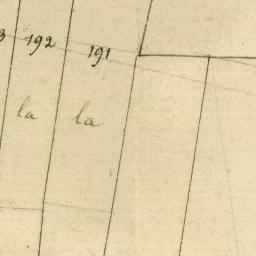 3 192 191
la la